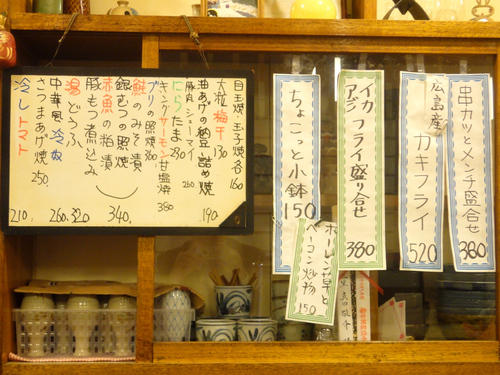 目玉焼・玉子焼 各160
大粒 梅干 130
油あげの納豆詰め焼 190
豚肉シューマイ 260
にらたま 230
キングサーモン甘塩焼 380
ブリの照焼 350
鮭のみそ漬
銀むつの照焼
赤魚の粕漬 340.
豚もつ煮込み
湯どうふ 320
中華風冷奴 260.
さつまあげ焼 250.
冷しトマト 210.
串カツとメンチ盛合せ 360
広島産
カキフライ 520
イカ
アジ フライ盛り合せ 380
ちょこっと小鉢 150
ホーレン草と
ベーコン炒物 150